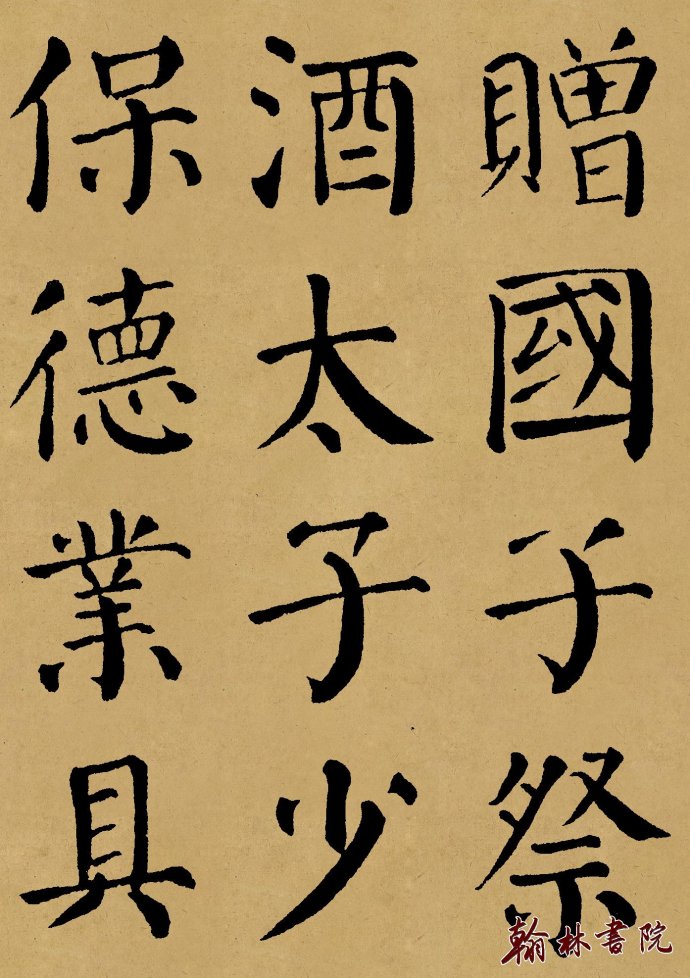 贈國子祭
酒太子少
保德業具
翰林書院